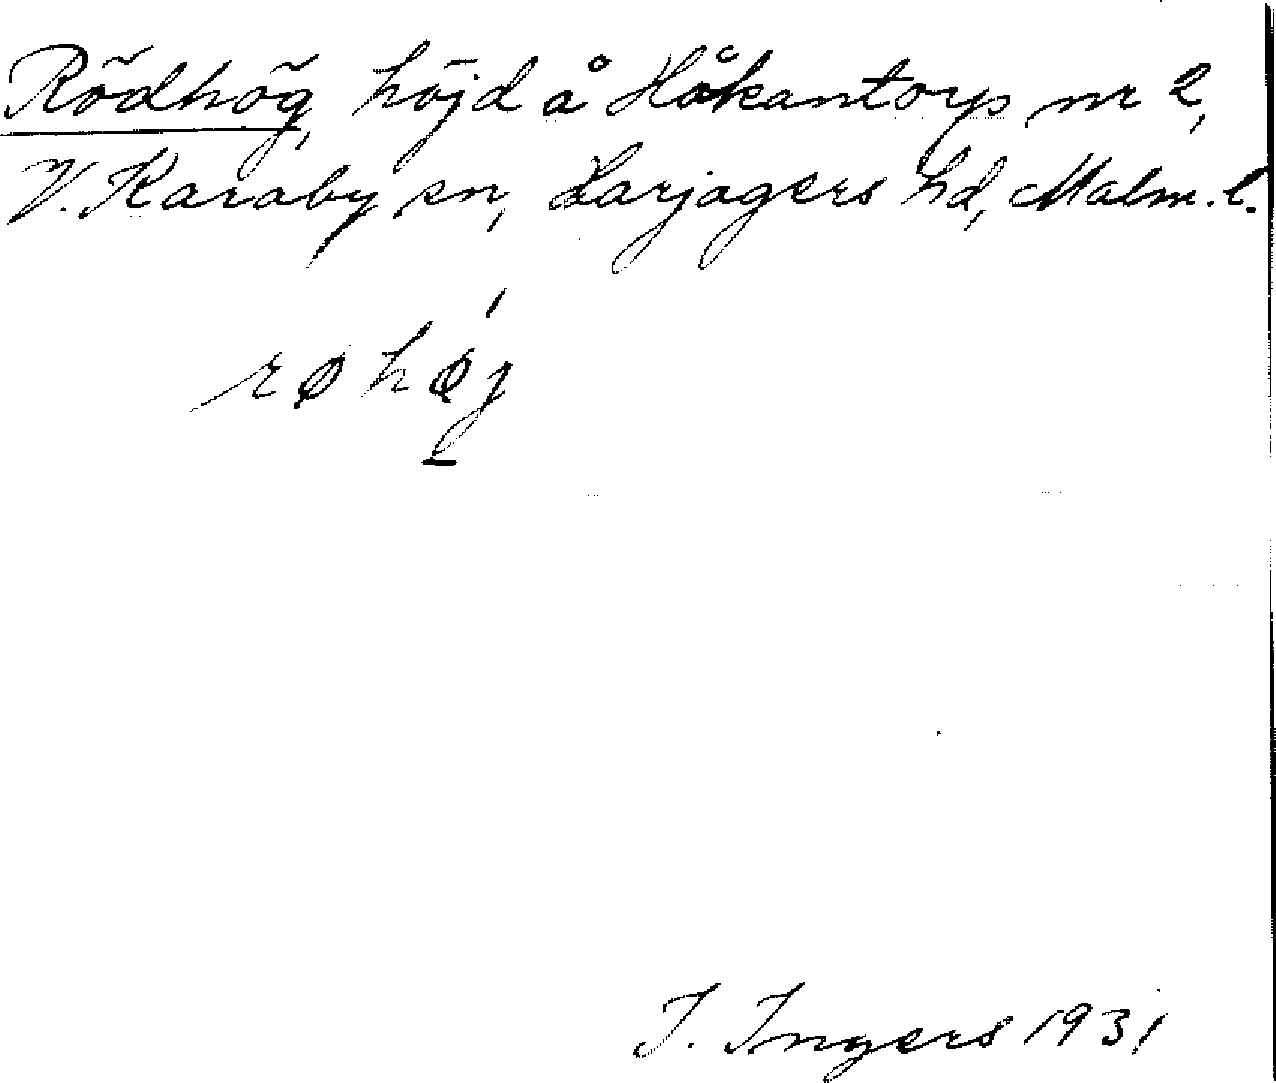 Rödhög, höjd å Håkantorps nr 2,
V. Karaby sn, Harjagers hd, Malm. l.
røhøj
I. Ingers 1931